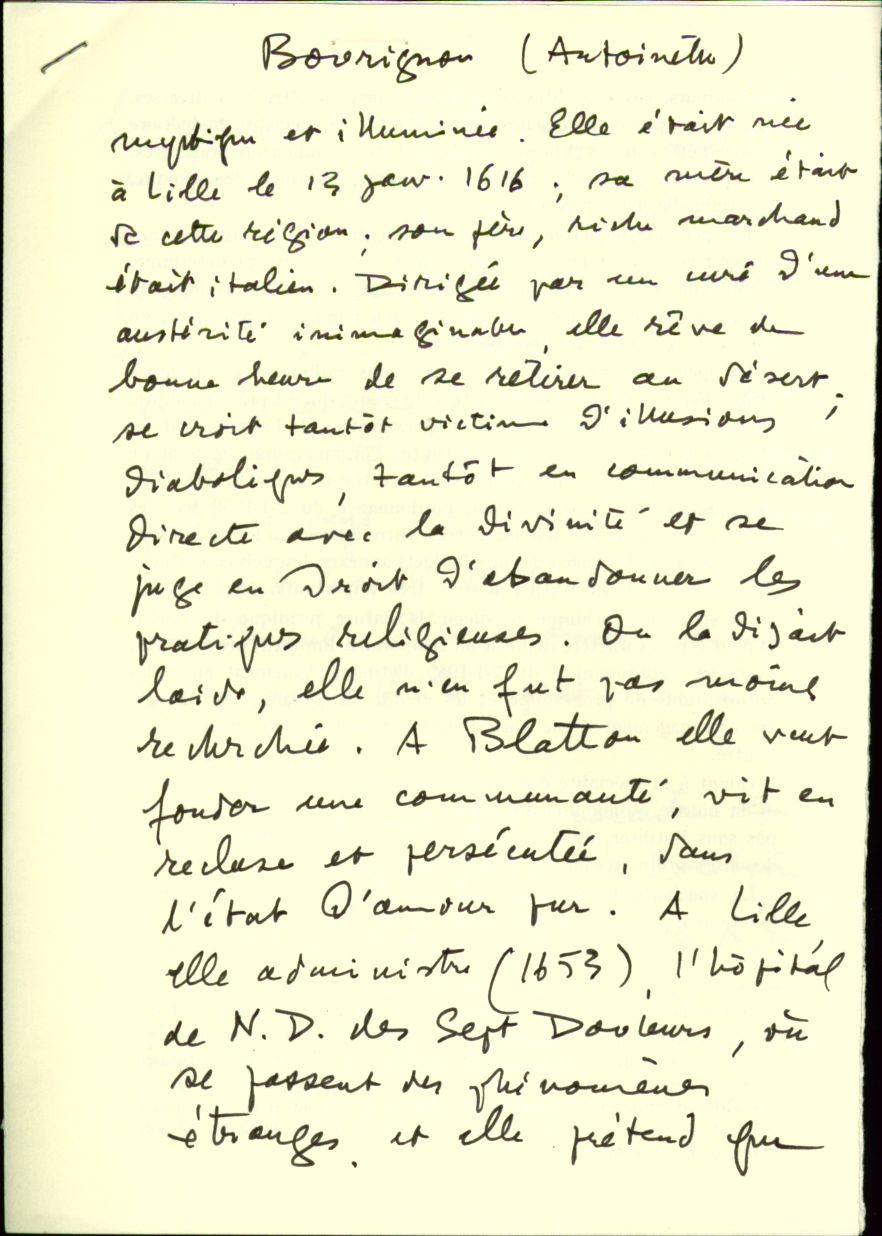 Bourignon (Antoinette)
mystique et illuminée. Elle était née
à Lille le 13 janv. 1616 ; sa mère était
de cette région ; son père, riche marchand
était italien. Dirigée par un curé d'une
austérité inimaginable, elle rêve de
bonne heure de se retirer au désert,
se croit tantôt victime d'illusions ;
diaboliques, tantôt en communication
directe avec la divinité et se
juge en droit d'abandonner les
pratiques religieuses. On la disait
laide, elle n'en fut pas moins
recherchée. A Blatton elle veut
fonder une communauté, vit en
recluse et persécutée, dans
l'état d'amour pur. A Lille,
elle administre (1653), l'hôpital
de N.D. des Sept Douleurs, où
se passent des phénomènes
étranges. et elle prétend que